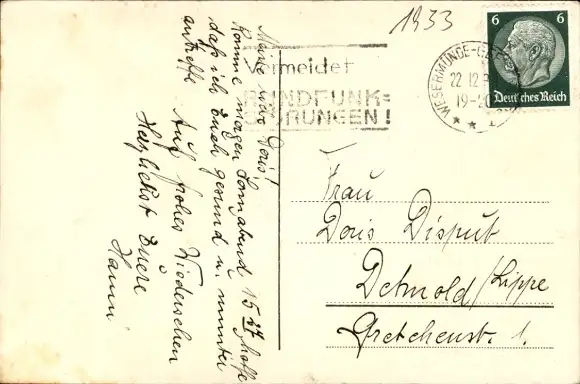 1933
Vermeidet
RUNDFUNK=
STÖRUNGEN!
WESERMÜNDE-G
22 12
19-20
6 6
Deutsches Reich
Meine liebe Doris!
Komme morgen Sonnabend 15 27 hoffe
daß ich Euch gesund u. munter
antreffe
Auf frohes Wiedersehen
Herzlichst Euere
Hanni
Frau
Doris Disput
Detmold/Lippe
Gretchenstr. 1.